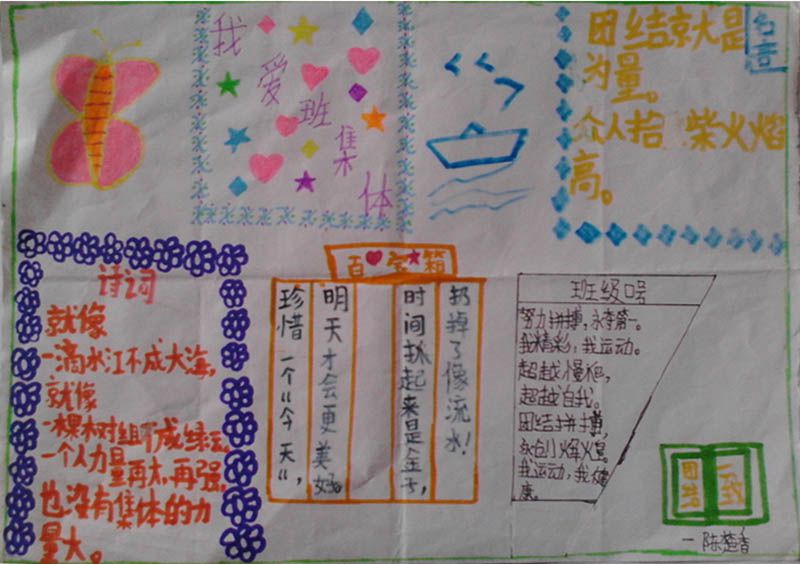 我爱班集体
名言
团结就大是
为量。
众人拾 柴火焰
高。
诗词
就像
一滴水江不成大海,
就像
一棵树组不成绿
一个人力量再大,再强,
也没有集体的力
量大。
百宝箱
扔掉了像流水!
时间抓起来是金子,
明天才会更美好
珍惜一个“今天”,
班级口号
努力拼搏,永夺第一。
我精彩,我运动。
超越
超越自我。
团结拼搏,
我运动,我健
康。
团结一致
一陈楚香